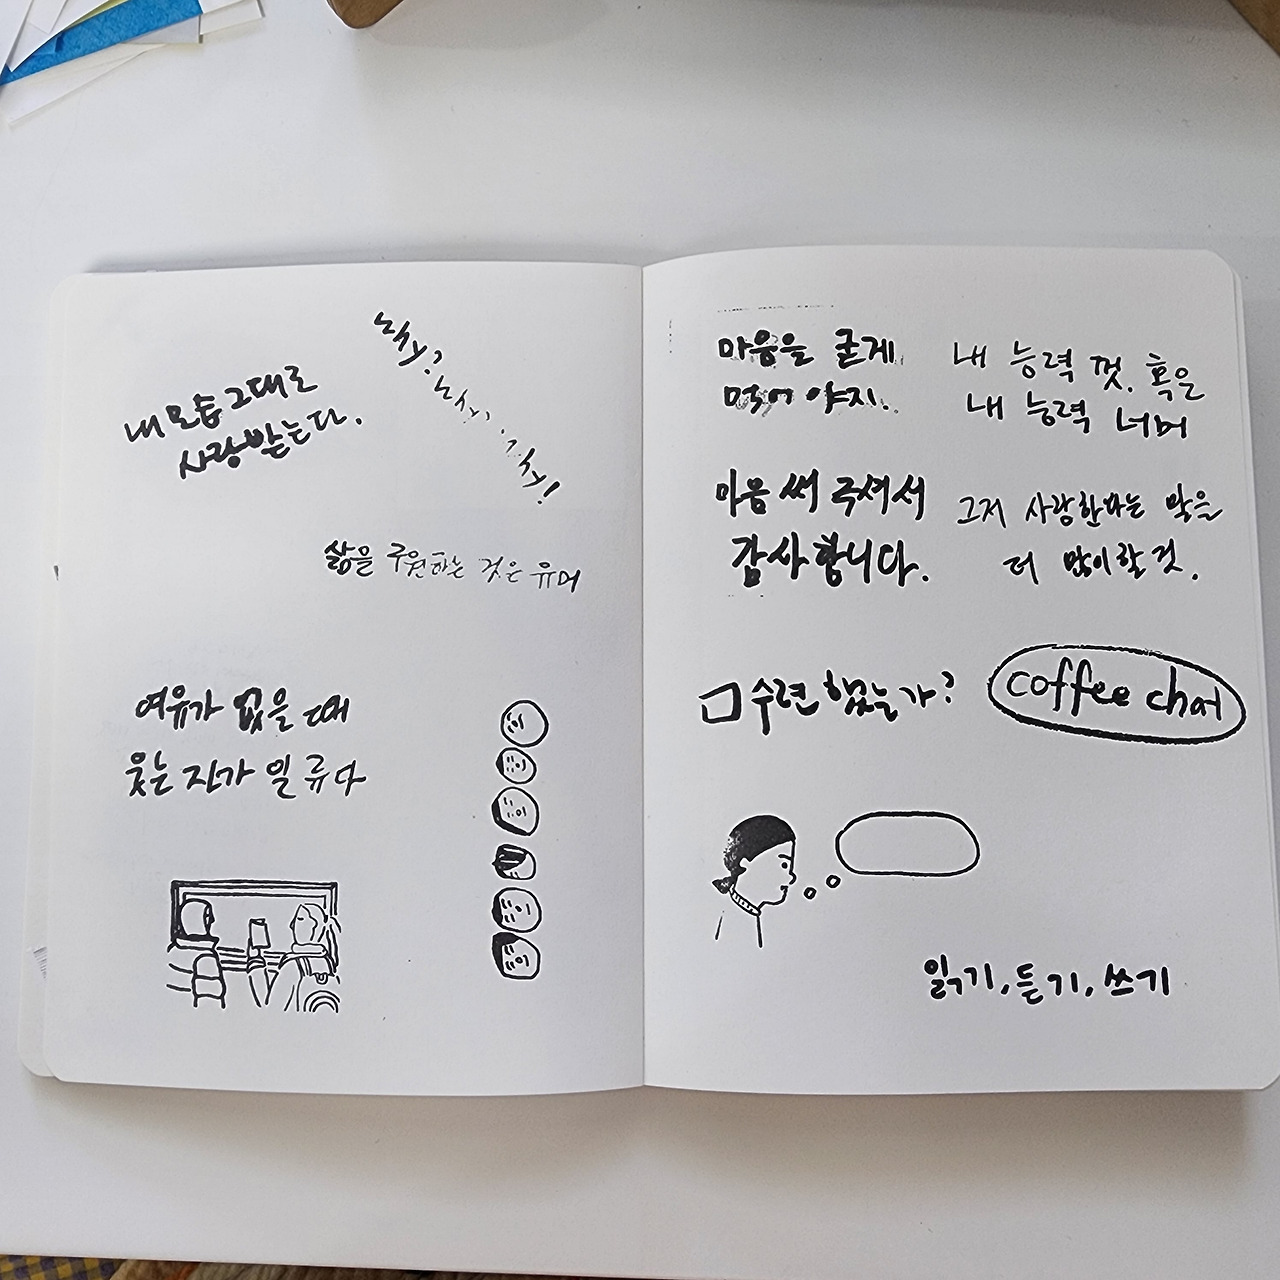 내 모습 그대로
사랑받는다.
삶을 구원하는 것은 유머
여유가 없을 때
웃는 자가 일류다
마음을 굳게
먹어야지.
내 능력 껏. 혹은
내 능력 너머
마음 써 주셔서
감사합니다.
그저 사랑한다는 말을
더 많이 할 것.
수련 했는가?
coffee chat
읽기, 듣기, 쓰기